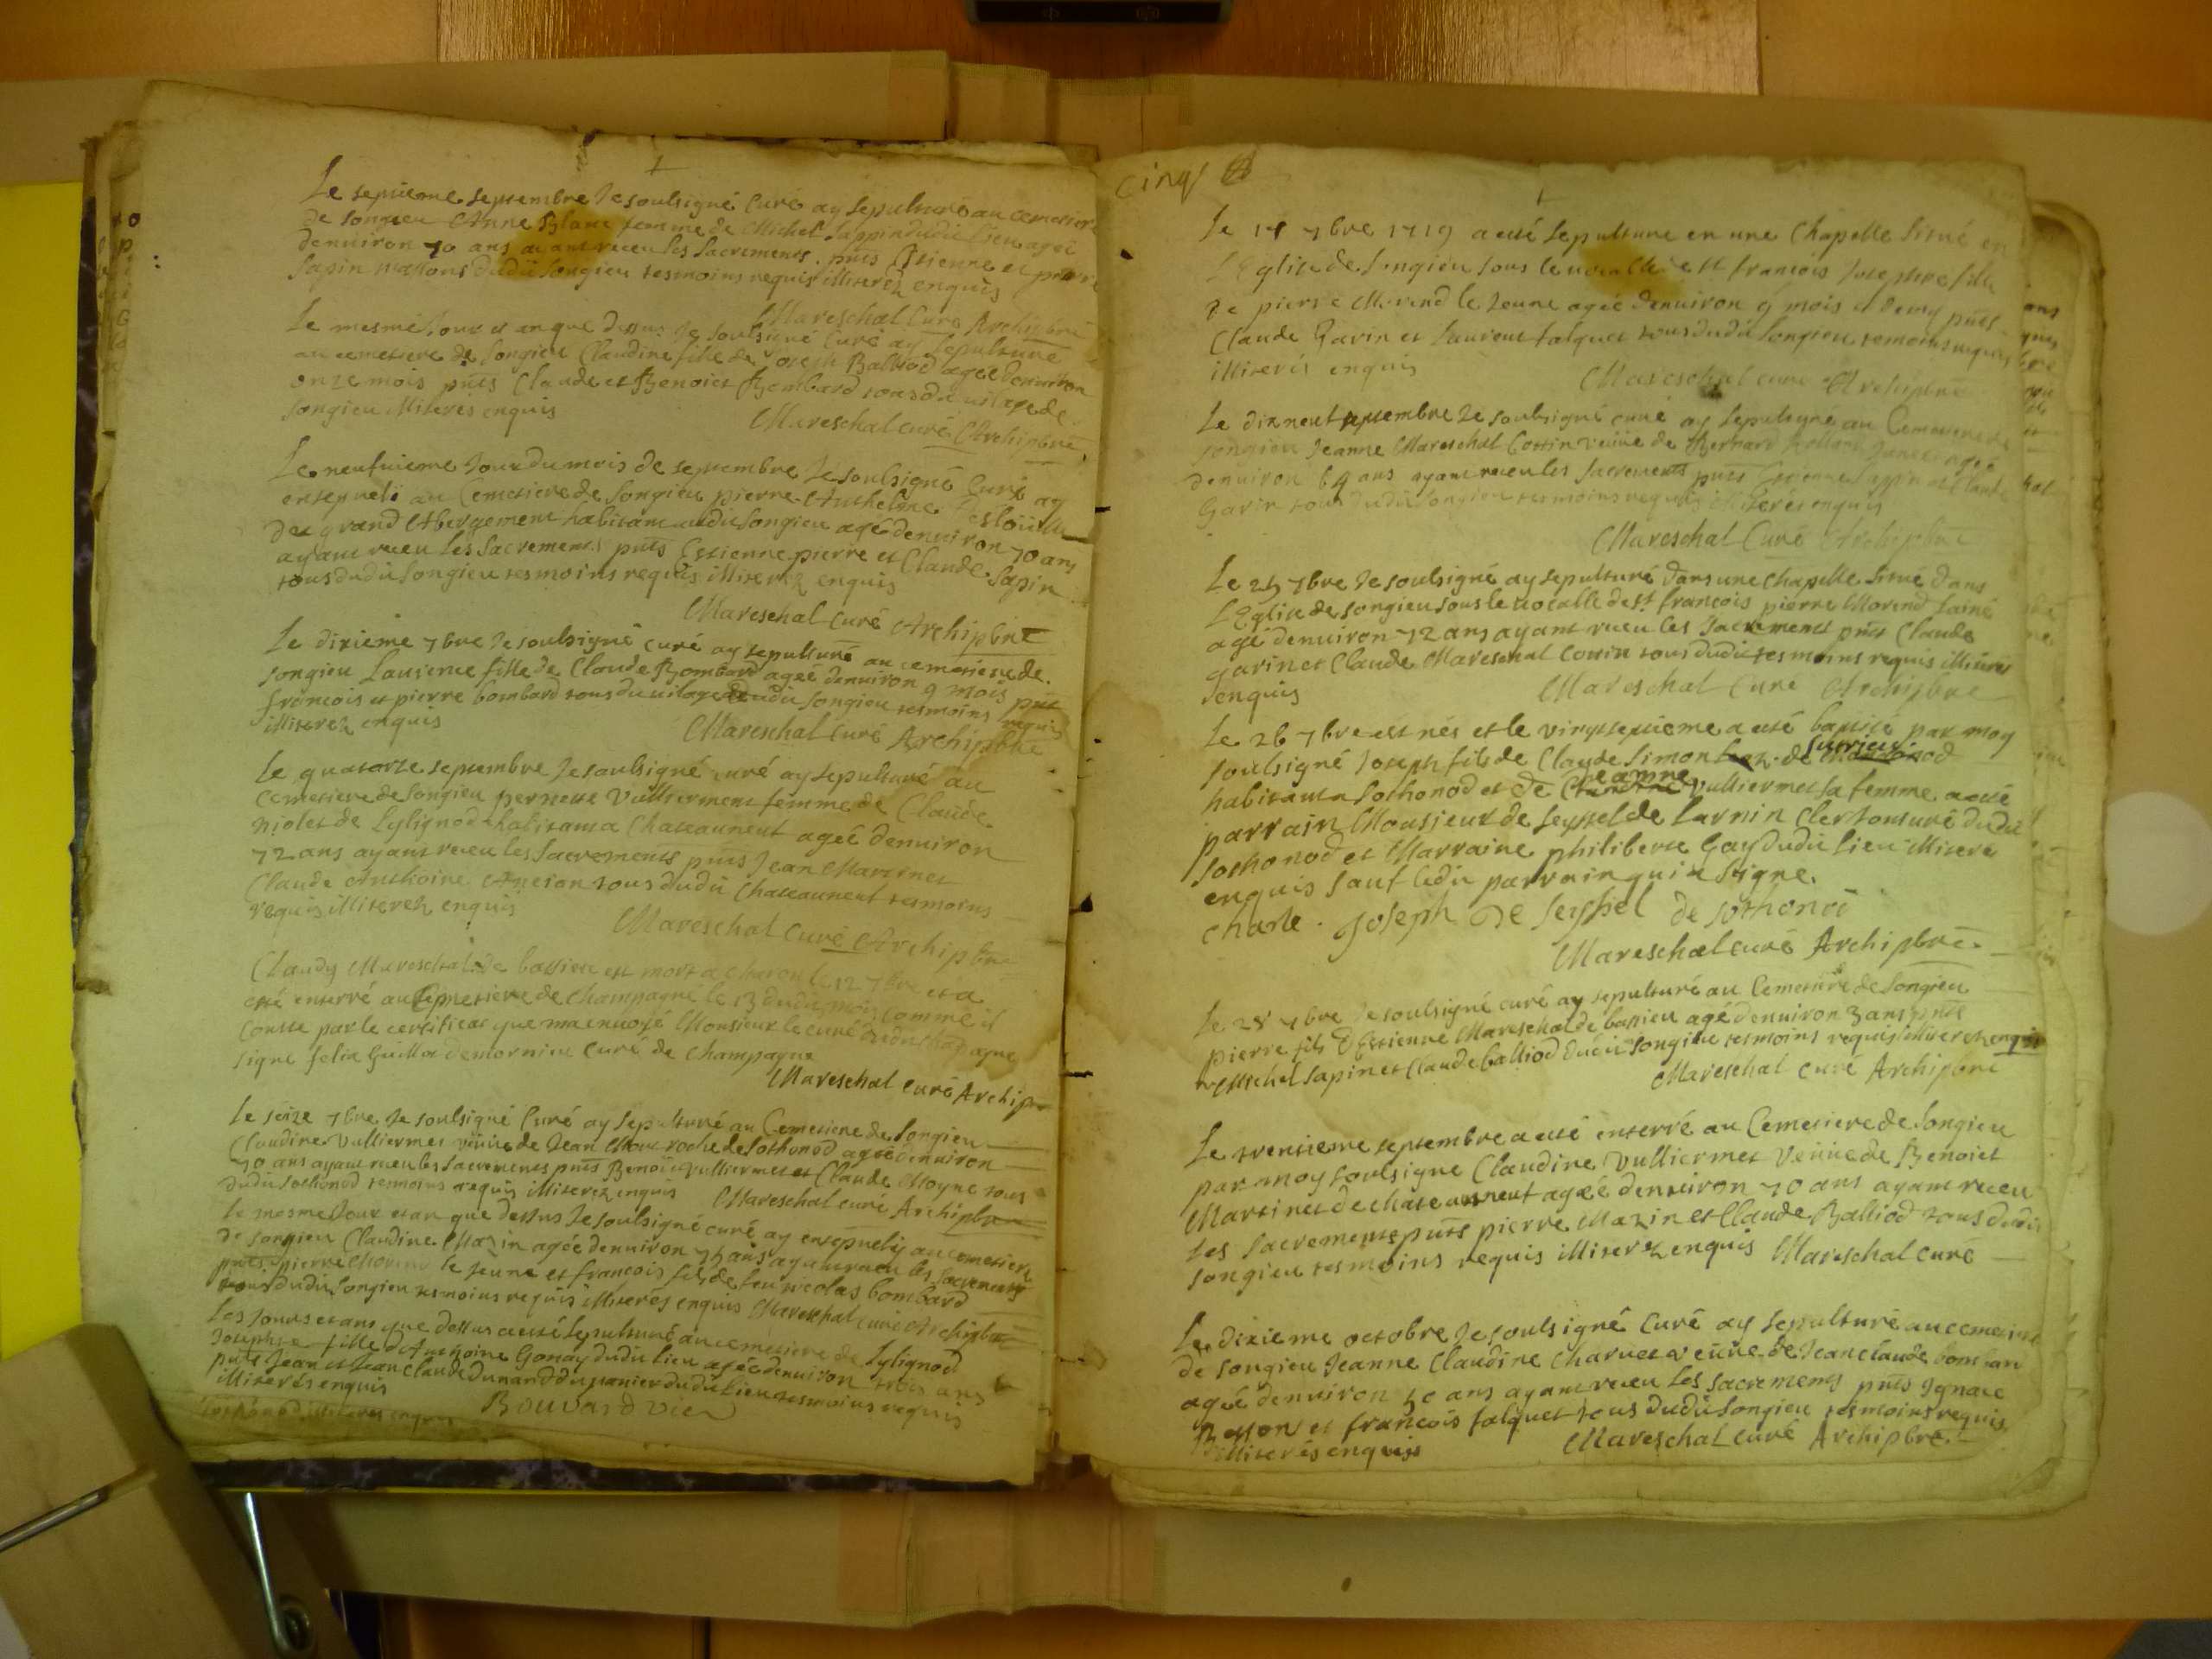 Le septieme septembre Je soulsigné Curé ay sepulturé au cemetiere
de songieu Anne Blanc femme de Michel Sappin dudit lieu ageé
denuiron 70 ans ayant receu les sacrements. pnts Estienne et pierre
Sapin massons dudit songieu tesmoins requis illiterez enquis
Mareschal Curé Archipbre
Le mesme Jour et an que dessus Je soulsigné Curé ay sepulturé
au cemetiere de songieu Claudine fille de Joseph Balliod ageé denuiron
onze mois pnts Claude et Benoict Bombard tous du uilage de
songieu illiterés enquis
Mareschal curé Archipbre
Le neufuieme Jour du mois de septembre Je soulsigné Curé ay
enseueli au Cemetiere de songieu pierre Anthelme
du grand Abergement habitant audit songieu agé denuiron 70 ans
ayant receu les sacrements pnts Estienne pierre et Claude Sapin
tous dudit songieu tesmoins requis illiterez enquis
Mareschal curé Archipbre
Le dixieme 7bre Je soulsigné curé ay sepulturé au cemetiere de
songieu Laurence fille de Claude Bombard ageé denuiron 9 mois pnt
francois et pierre bombard tous du uilage dudit songieu tesmoins requis
illiterez enquis
Mareschal curé Archipbre
Le quatorze septembre Je soulsigné curé ay sepulturé au
Cemetiere de songieu pernette Vulliermet femme de Claude
niolet de Lylignod habitant a Chateauneuf ageé denuiron
72 ans ayant receu les sacrements pnts Jean Martinet
Claude Anthoine Ancian tous dudit Chateauneuf tesmoins
requis illiterez enquis
Mareschal curé Archipbre
Claudy Mareschal de bassieu est mort a le 12 7bre et a
esté enterré au Cemetiere de Champagne le 13 dudit mois comme il
Conste par le certificat que ma enuoyé Monsieur le curé dudit Champagne
signé felix Guillot demornieu Curé de Champagne
Mareschal curé Archip
Le seize 7bre Je soulsigné Curé ay sepulturé au Cemetiere de songieu
Claudine Vulliermet veuue de Jean de Sothonod ageé denuiron
70 ans ayant receu les sacrements pnts Benoict Vulliermet et Claude Moyne tous
dudit Sothonod tesmoins requis illiterez enquis Mareschal curé Archipbre
Le mesme Jour et an que dessus Je soulsigné curé ay enseuely au cemetiere
de songieu Claudine Mazin ageé denuiron 75 ans ayant receu les sacrements
pnts pierre Morend le Jeune et francois fils de feu nicolas bombard
tous dudit songieu tesmoins requis illiterés enquis Mareschal curé Archipbre
Les Jours et ans que dessus a esté sepulturé au cemetiere de Lylignod
Josephte fille d'Anthoine Gonay dudit lieu ageé denuiron trois ans
pnts Jean et Jean Claude Dunand du panier dudit lieu tesmoins requis
illiterés enquis
Bouvard vic
Cinq
Le 18 7bre 1719 a esté sepulturé en une Chapelle situé en
L'Eglise de songieu sous le uocable st francois Josephte fille
de pierre Morend le Jeune ageé denuiron 9 mois et demy pnts
Claude Garin et Laurent falquet tous dudit songieu temoins requis
illiterés enquis
Mareschal curé Archipbre
Le dixneuf septembre Je soulsigné curé ay sepulturé au Cemetiere de
songieu Jeanne Mareschal Cottin veuue de Bernard ageé
denuiron 64 ans ayant receu les sacrements pnts Estienne Sapin et Claude
Garin tous dudit songieu tesmoins requis illiterés enquis
Mareschal Curé Archipbre
Le 25 7bre Je soulsigné ay sepulturé dans une Chapelle situé dans
L'Eglise de songieu sous le uocable de st francois pierre Morend Lainé
agé denuiron 72 ans ayant receu les sacrements pnts Claude
garin et Claude Mareschal Cottin tous dudit tesmoins requis illiterés
enquis
Mareschal Curé Archipbre
Le 26 7bre est nés et le vingtseptieme a esté baptisé par moy
soulsigné Joseph fils de Claude Simon de surieu
habitant a Sothonod et de Jeanne Vulliermet sa femme a esté
parrain Monsieur de Seyssel de Larnin Clerc tonsuré dudit
Sothonod et Marraine philiberte Gay dudit lieu illiteré
enquis sauf ledit parrain qui a signé.
Charle . Joseph De Seyssel de sothonod
Mareschal curé Archipbre.
Le 28 7bre Je soulsigné curé ay sepulturé au Cemetiere de songieu
pierre fils d'Estienne Mareschal de bassieu agé denuiron 3 ans pnts
Michel Sapin et Claude balliod dudit songieu tesmoins requis illiterez enquis
Mareschal curé Archipbre
Le trentieme septembre a esté enterré au Cemetiere de songieu
par moy soulsigné Claudine Vulliermet Veuue de Benoict
Martinet de chateauneuf ageé denuiron 70 ans ayant receu
les sacrements pnts pierre Mazin et Claude Balliod tous dudit
songieu tesmoins requis illiterez enquis Mareschal curé
Le dixieme octobre Je soulsigné Curé ay sepulturé au cemetiere
de songieu Jeanne Claudine Charuet veuue de Jean claude
ageé denuiron 50 ans ayant receu les sacrements pnts Ignace
Besson et francois falquet tous dudit songieu tesmoins requis
illiterés enquis
Mareschal curé Archipbre.